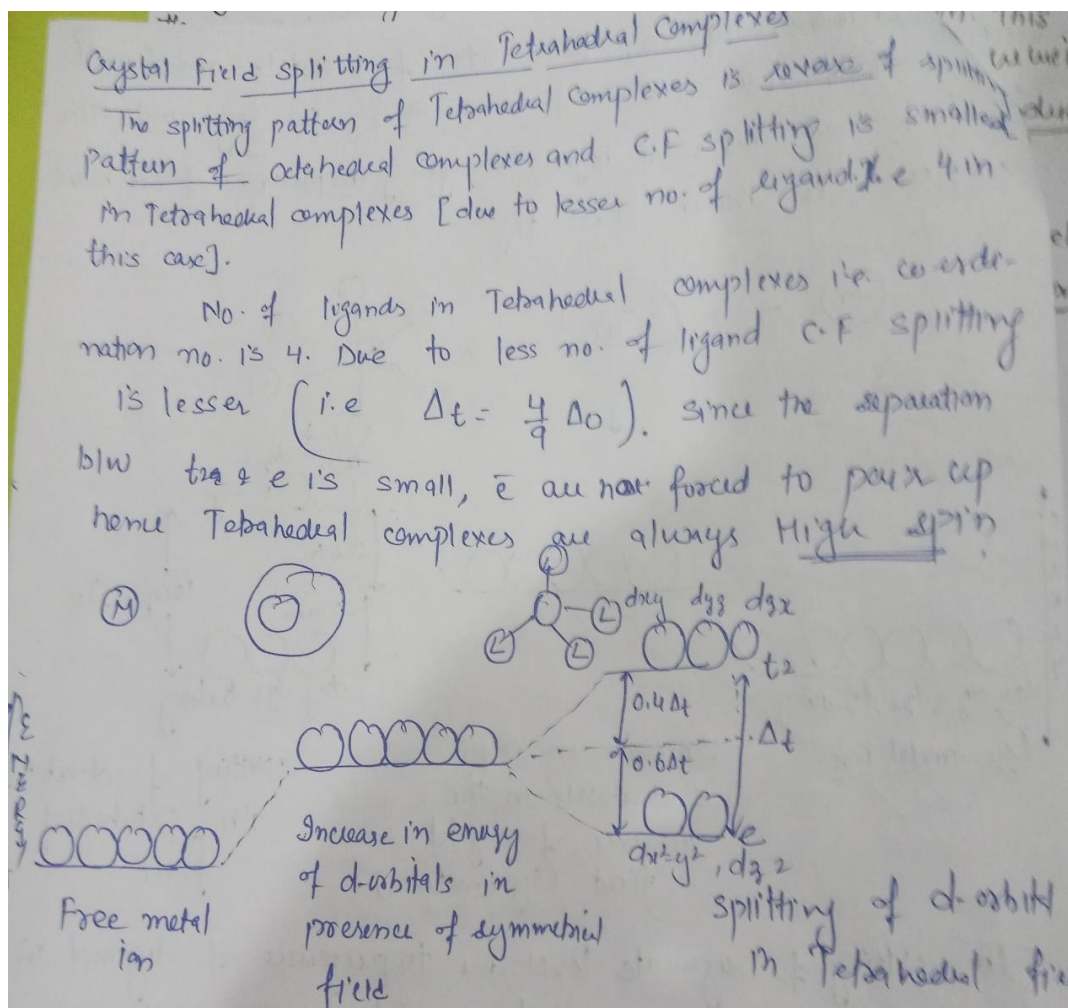 Crystal Field splitting in Tetrahedral Complexes
The splitting pattern of Tetrahedral Complexes is reverse of splitting
pattern of octahedral complexes and C.F splitting is smaller
in Tetrahedral complexes [due to lesser no. of ligand i.e 4 in
this case].
No. of ligands in Tetrahedral complexes i.e. co-ordi-
nation no. is 4. Due to less no. of ligand C.F splitting
is lesser (i.e Δt = 4/9 Δo). Since the separation
b/w t2g & e is small, ē are not forced to pair up
hence Tetrahedral complexes are always High spin
M
L
L L L
dxy dyz dzx
t2
0.4Δt
Δt
0.6Δt
e
dx²-y², dz2
Energy
Free metal
ion
Increase in energy
of d-orbitals in
presence of symmetrical
field
splitting of d-orbital
in Tetrahedral